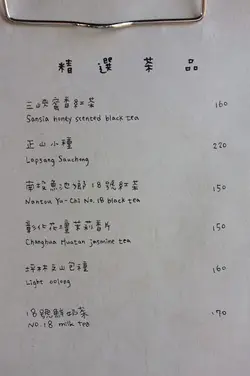 精選茶品
三峽蜜香紅茶 160
Sansia honey scented black tea
正山小種 220
Lapsang Souchong
南投魚池鄉18號紅茶 150
Nantou Yu-Chi No.18 black tea
彰化花壇茉莉香片 150
Changhua Huatan jasmine tea
坪林文山包種 160
Light oolong
18號鮮奶茶 170
NO.18 milk tea